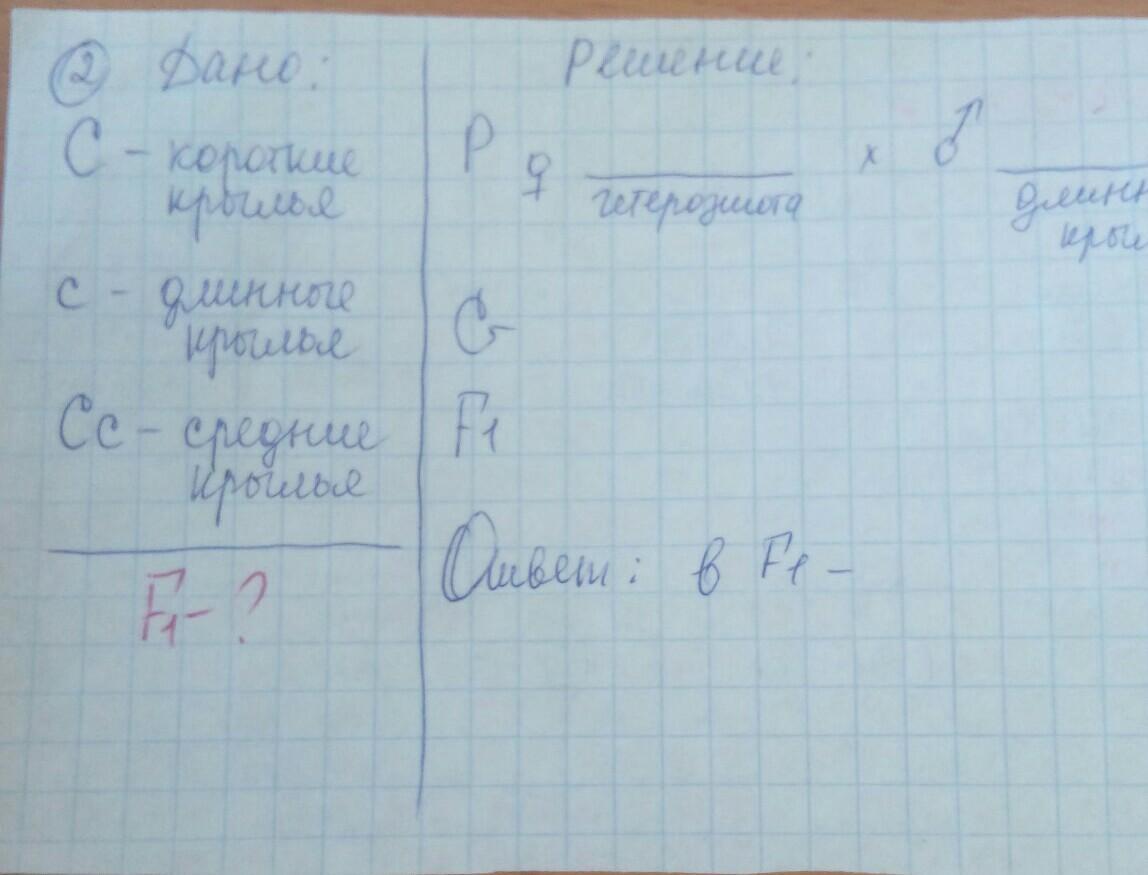 2 Дано:
С - короткие
крылья
с - длинные
крылья
Сс - средние
крылья
F1 - ?
Решение:
Р ♀ ________ х ♂ ________
гетерозигота длинн
крыл
G
F1
Ответ: в F1 -